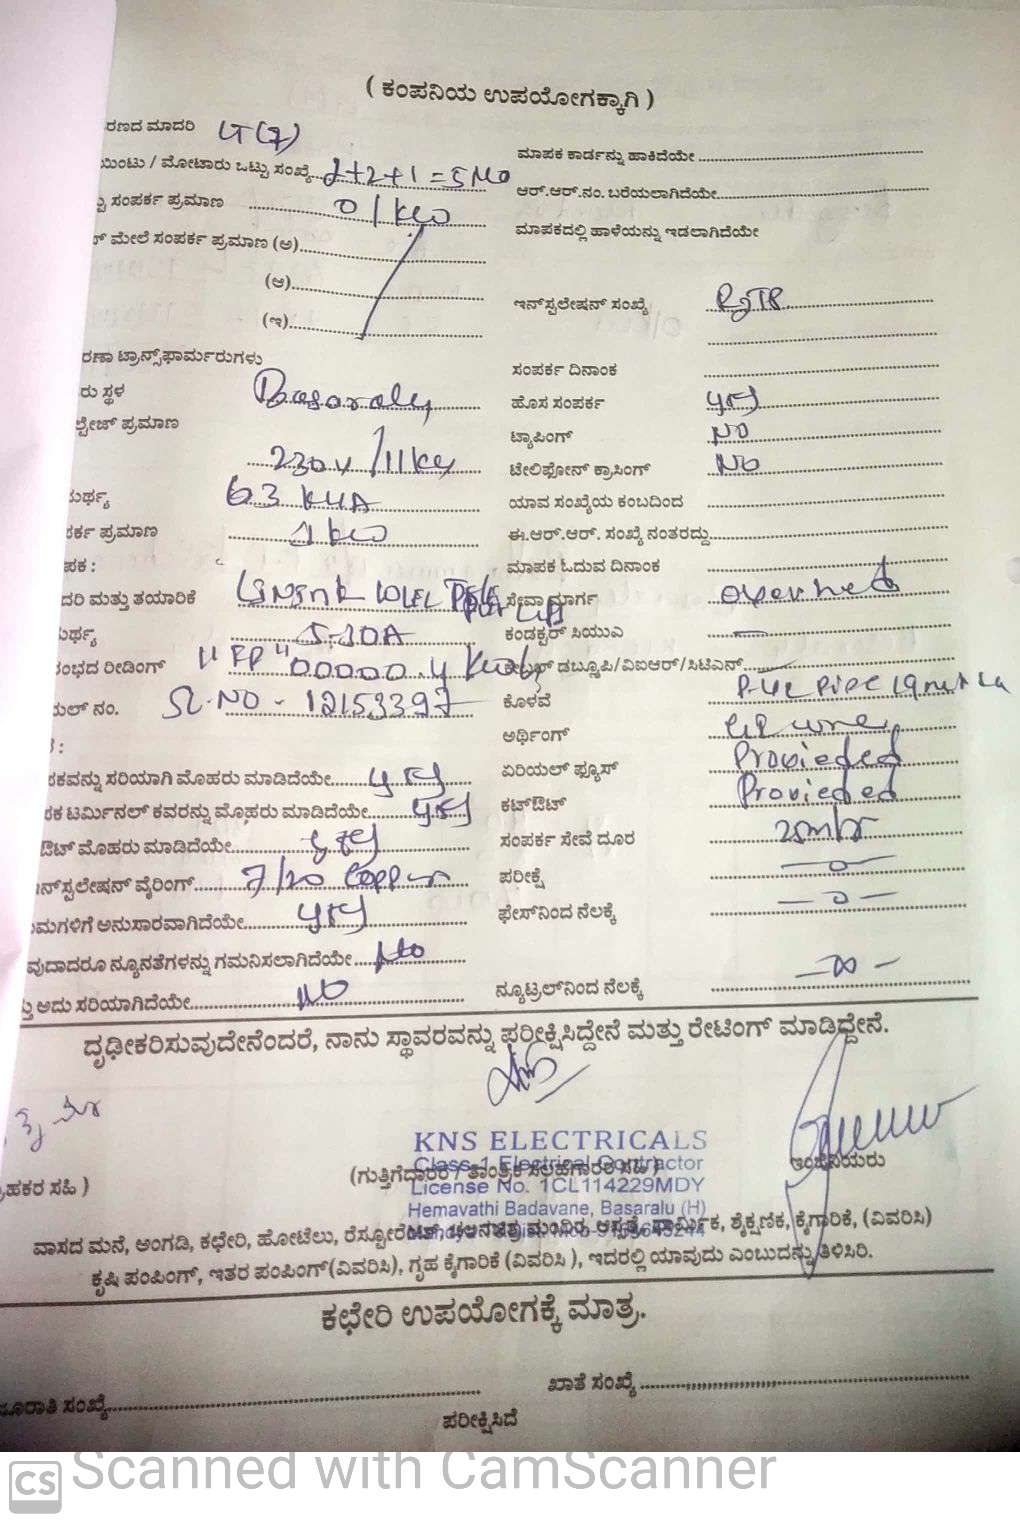 ( ಕಂಪನಿಯ ಉಪಯೋಗಕ್ಕಾಗಿ )
ರಣದ ಮಾದರಿ LT(7)
ಯಿಂಟು / ಮೋಟಾರು ಒಟ್ಟು ಸಂಖ್ಯೆ 2+2+1=5 No
ಮಾಪಕ ಕಾರ್ಡನ್ನು ಹಾಕಿದೆಯೇ
ಟ್ಟು ಸಂಪರ್ಕ ಪ್ರಮಾಣ 01kw
ಆರ್.ಆರ್.ನಂ. ಬರೆಯಲಾಗಿದೆಯೇ
ಮೇಲೆ ಸಂಪರ್ಕ ಪ್ರಮಾಣ (ಅ)
ಮಾಪಕದಲ್ಲಿ ಹಾಳೆಯನ್ನು ಇಡಲಾಗಿದೆಯೇ
(ಆ)
(ಇ)
ಇನ್‌ಸ್ಟಲೇಷನ್ ಸಂಖ್ಯೆ
ರಣಾ ಟ್ರಾನ್ಸ್‌ಫಾರ್ಮರುಗಳು
ಸಂಪರ್ಕ ದಿನಾಂಕ
ರು ಸ್ಥಳ Basaralu
ಹೊಸ ಸಂಪರ್ಕ yes
ಲ್ಟೇಜ್ ಪ್ರಮಾಣ 230v/11kv
ಟ್ಯಾಪಿಂಗ್ NO
ಟೇಲಿಫೋನ್ ಕ್ರಾಸಿಂಗ್ No
ಮರ್ಥ್ಯ 63 KVA
ಯಾವ ಸಂಖ್ಯೆಯ ಕಂಬದಿಂದ
ಪರ್ಕ ಪ್ರಮಾಣ 1kw
ಈ.ಆರ್.ಆರ್. ಸಂಖ್ಯೆ ನಂತರದ್ದು
ಪಕ :
ಮಾಪಕ ಓದುವ ದಿನಾಂಕ
ದರಿ ಮತ್ತು ತಯಾರಿಕೆ
ಸೇವಾ ಮಾರ್ಗ overhed
ಮರ್ಥ್ಯ 5-30A
ಕಂಡಕ್ಟರ್ ಸಿಯುಎ
ರಂಭದ ರೀಡಿಂಗ್ "FR" 00000.4 Kwh
ಕೇಬಲ್ ಡಬ್ಲೂಪಿ/ವಿಐಆರ್/ಸಿಟಿಎನ್
ಯಲ್ ನಂ. SL.NO - 12153397
ಕೊಳವೆ PVC Pipe
ಅರ್ಥಿಂಗ್ GI wire
ಪಕವನ್ನು ಸರಿಯಾಗಿ ಮೊಹರು ಮಾಡಿದೆಯೇ yes
ಏರಿಯಲ್ ಫ್ಯೂಸ್ Provieded
ಪಕ ಟರ್ಮಿನಲ್ ಕವರನ್ನು ಮೊಹರು ಮಾಡಿದೆಯೇ yes
ಕಟ್‌ಔಟ್ Provieded
ಔಟ್ ಮೊಹರು ಮಾಡಿದೆಯೇ yes
ಸಂಪರ್ಕ ಸೇವೆ ದೂರ 25mtr
ನ್‌ಸ್ಟಲೇಷನ್ ವೈರಿಂಗ್ 7/20 Copper
ಪರೀಕ್ಷೆ —0—
ಯಮಗಳಿಗೆ ಅನುಸಾರವಾಗಿದೆಯೇ yes
ಫೇಸ್‌ನಿಂದ ನೆಲಕ್ಕೆ —0—
ವುದಾದರೂ ನ್ಯೂನತೆಗಳನ್ನು ಗಮನಿಸಲಾಗಿದೆಯೇ No
ತ್ತು ಅದು ಸರಿಯಾಗಿದೆಯೇ No
ನ್ಯೂಟ್ರಲ್‌ನಿಂದ ನೆಲಕ್ಕೆ —∞—
ದೃಢೀಕರಿಸುವುದೇನೆಂದರೆ, ನಾನು ಸ್ಥಾವರವನ್ನು ಪರೀಕ್ಷಿಸಿದ್ದೇನೆ ಮತ್ತು ರೇಟಿಂಗ್ ಮಾಡಿದ್ದೇನೆ.
KNS ELECTRICALS
Class-1 Electrical Contractor
(ಗುತ್ತಿಗೆದಾರರ / ತಾಂತ್ರಿಕ ಸಲಹೆಗಾರರ ಸಹಿ)
ಇಂಜಿನಿಯರು
License No. 1CL114229MDY
ರಾಹಕರ ಸಹಿ )
Hemavathi Badavane, Basaralu (H)
ವಾಸದ ಮನೆ, ಅಂಗಡಿ, ಕಛೇರಿ, ಹೋಟೆಲು, ರೆಸ್ಟೋರೆಂಟ್, ಚಲನಚಿತ್ರ ಮಂದಿರ, ಆಸ್ಪತ್ರೆ, ಧಾರ್ಮಿಕ, ಶೈಕ್ಷಣಿಕ, ಕೈಗಾರಿಕೆ, (ವಿವರಿಸಿ)
ಕೃಷಿ ಪಂಪಿಂಗ್, ಇತರ ಪಂಪಿಂಗ್(ವಿವರಿಸಿ), ಗೃಹ ಕೈಗಾರಿಕೆ (ವಿವರಿಸಿ ), ಇದರಲ್ಲಿ ಯಾವುದು ಎಂಬುದನ್ನು ತಿಳಿಸಿರಿ.
ಕಛೇರಿ ಉಪಯೋಗಕ್ಕೆ ಮಾತ್ರ.
ಖಾತೆ ಸಂಖ್ಯೆ
ಜೂರಾತಿ ಸಂಖ್ಯೆ
ಪರೀಕ್ಷಿಸಿದೆ
CS Scanned with CamScanner